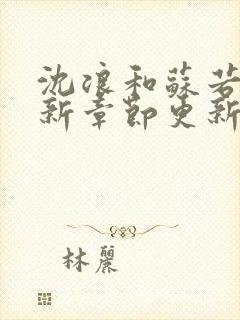 沈浪和蘇若
新章節更新
林麗